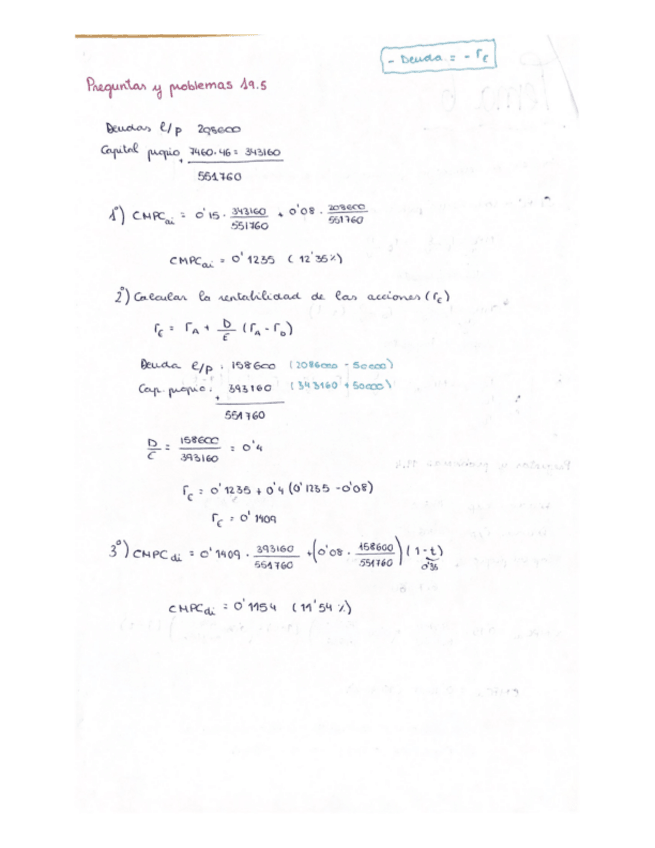 - Deuda = - rE
Preguntas y problemas 19.5
Deudas l/p 208600
Capital propio + 7460.46 = 343160
551760
1º) CMPCai = 0'15 · 343160/551760 + 0'08 · 208600/551760
CMPCai = 0'1235 (12'35%)
2º) Calcular la rentabilidad de las acciones (rE)
rE = rA + D/E (rA - rD)
Deuda l/p : 158600 (2086000 - 50000)
Cap. propio : + 393160 (343160 + 50000)
551760
D/E = 158600/393160 = 0'4
rE = 0'1235 + 0'4 (0'1235 - 0'08)
rE = 0'1409
3º) CMPCdi = 0'1409 · 393160/551760 + (0'08 · 158600/551760) (1-t)
0'35
CMPCdi = 0'1154 (11'54%)